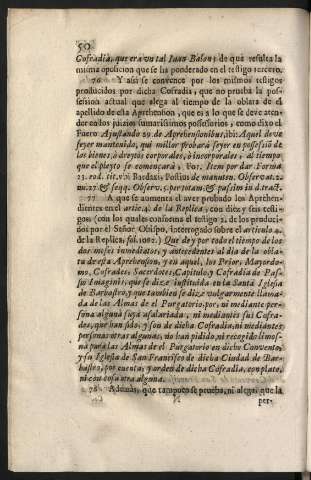 50
Cofradia, que era vn tal Iuan Balon; de que resulta la
misma oposicion que se ha ponderado en el testigo tercero.
76 Y assi se convence por los mismos testigos
producidos por dicha Cofradia, que no prueba la pos-
session actual que alega al tiempo de la oblata de el
apellido de esta Aprehension, que es a lo que se deve aten-
der en los juizios sumarissimos possessorios, como dixo el
Fuero Ajustando 29. de Aprehensionibus, ibi: Aquel de ve
seyer mantenido, qui millor probarà seyer en possessiõ de
los bienes, ò dreytos corporales, ò incorporales, al tiempo
que el pleyto se començarà, For. Item por dar Forma
23. eod. tit. vbi Bardaxi, Portius de manuten. Observat. 2.
nu. 27. & seqq. Observ. 5. per totam, & passim in d. tract.
77 A que se aumenta el aver probado los Aprehen-
dientes en el artic. 4. de la Replica, con diez y seis testi-
gos (con los quales conforma el testigo 2. de los produci-
dos por el Señor Obispo, interrogado sobre el articulo 4.
de la Replica, fol. 1062.) Que de y por todo el tiempo de los
dos meses inmediatos, y antecedentes al dia de la obla-
ta de esta Aprehension, y en aquel, los Prior, Mayordo-
mo, Cofrades, Sacerdotes, Capitulo, y Cofradia de Pas-
sio Imaginis, que se dize instituìda en la Santa Iglesia
de Barbastro, y que tambien se dize vulgarmente llama-
da de las Almas de el Purgatorio, por, ni mediante per-
sona alguna suya assalariada, ni mediantes sus Cofra-
des, que han sido, y son de dicha Cofradia, ni mediantes
personas otras algunas, no han pidido, ni recogido limos-
na para las Almas de el Purgatorio en dicho Convento,
y su Iglesia de San Francisco de dicha Ciudad de Bar-
bastro, por cuenta, y orden de dicha Cofradia, con plato,
ni con cosa otra alguna.
78 Ademàs, que tampoco se prueba, ni alega, que la
per-